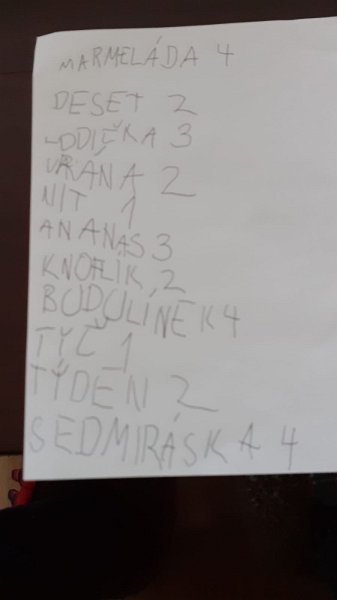 MARMELÁDA 4
DESET 2
LODIČKA 3
VRÁNA 2
NIT 1
ANANAS 3
KNOFLÍK, 2
BUDULINEK 4
TYČ 1
TÝDEN 2
SEDMIRÁSKA 4